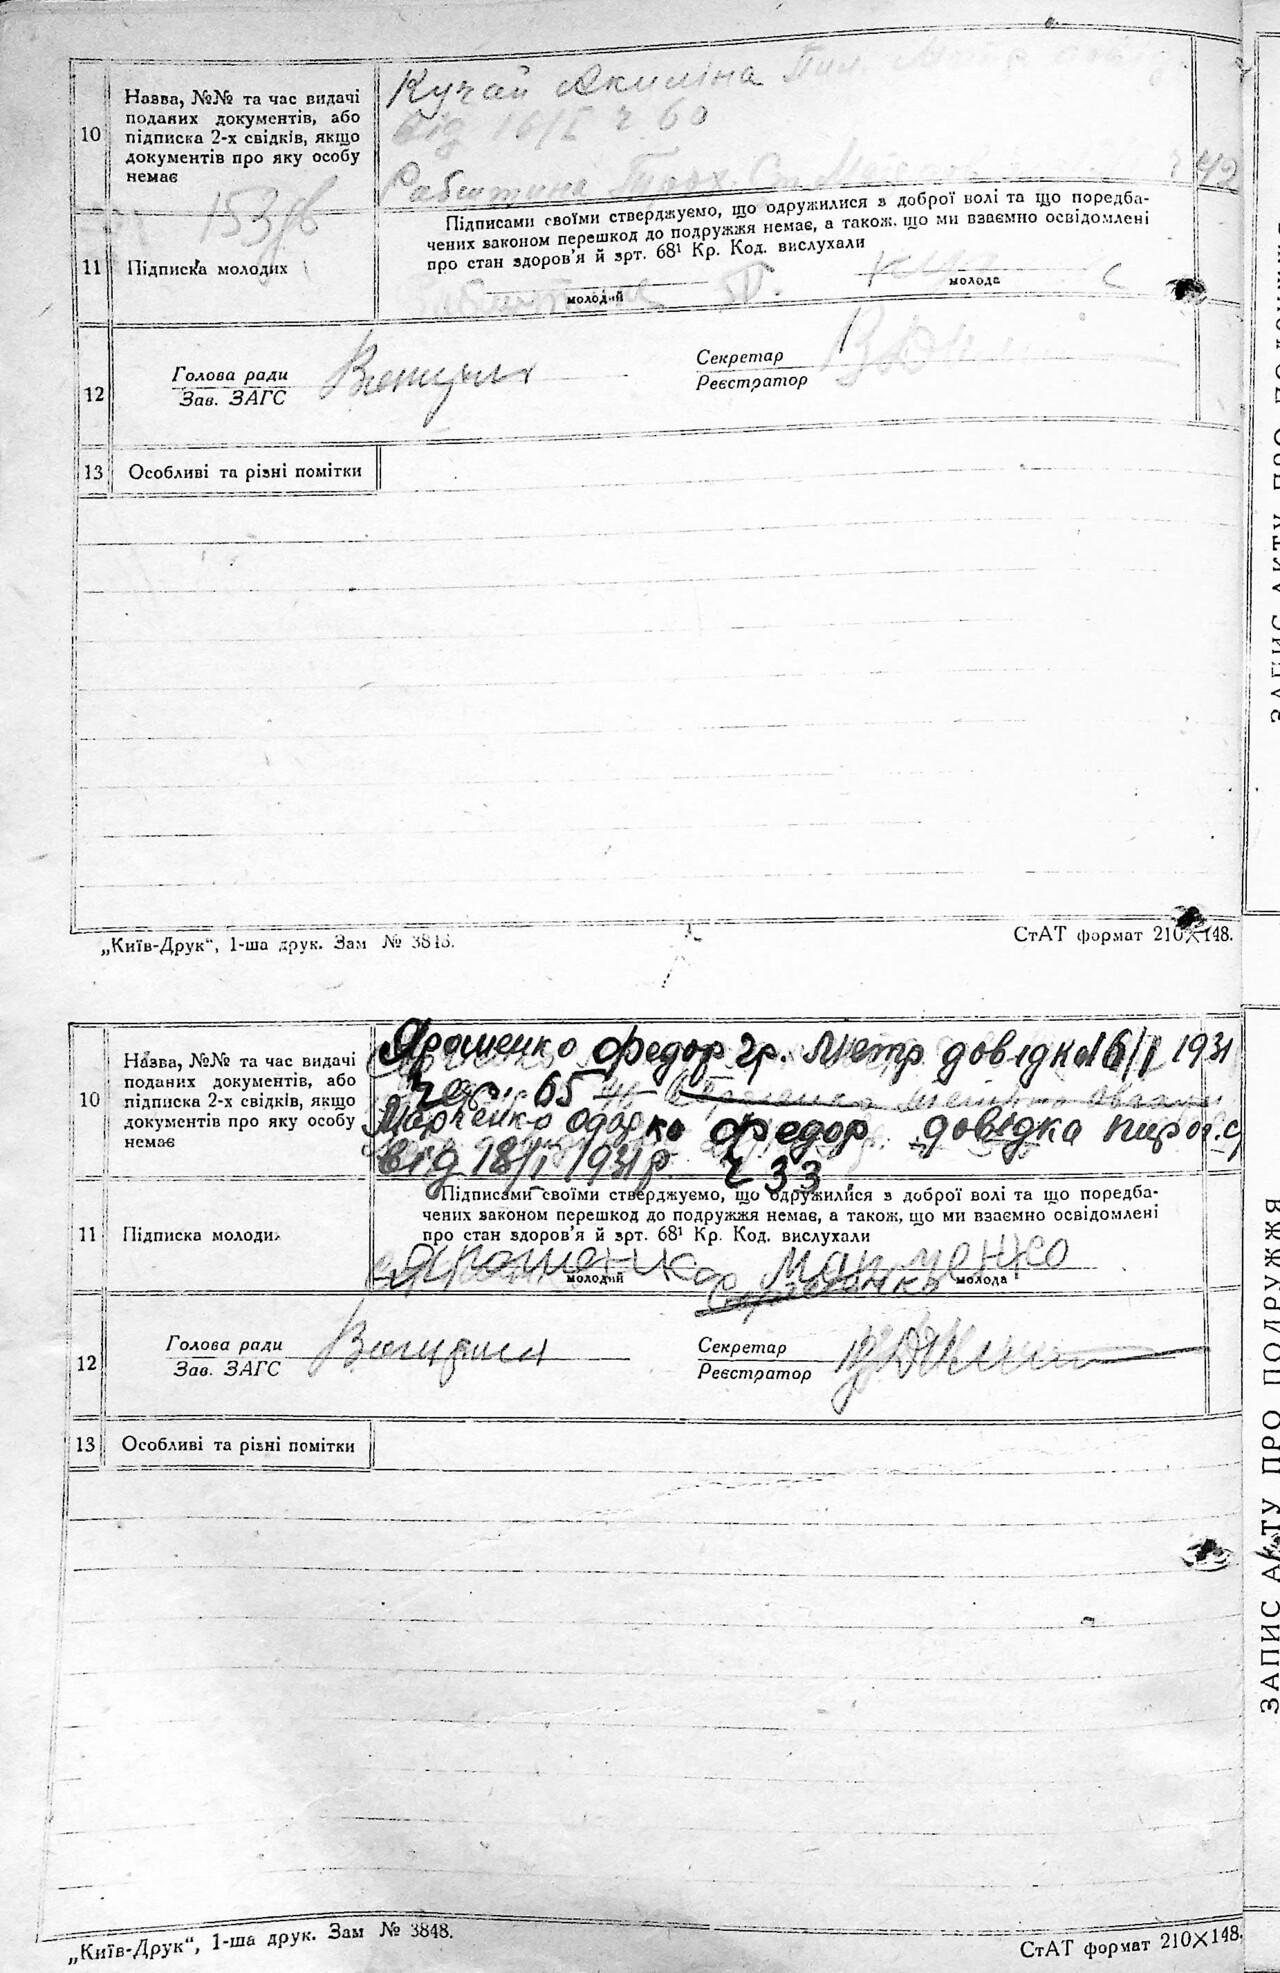 10
Назва, №№ та час видачі
поданих документів, або
підписка 2-х свідків, якщо
документів про яку особу
немає
Кучай Акиліна
від 16/I ч 60
42
153
11
Підписка молодих
Підписами своїми стверджуємо, що одружилися з доброї волі та що поредба-
чених законом перешкод до подружжя немає, а також, що ми взаємно освідомлені
про стан здоров'я й зрт. 68¹ Кр. Код. вислухали
молодий
молода
12
Голова ради
Зав. ЗАГС
Секретар
Реєстратор
13
Особливі та різні помітки
„Київ-Друк“, 1-ша друк. Зам № 3848.
СтАТ формат 210×148.
10
Назва, №№ та час видачі
поданих документів, або
підписка 2-х свідків, якщо
документів про яку особу
немає
Ярошенко Федор гр. Метр довідка 16/I 1931
65
Марченко Одарка Федор довідка
від 18/I 1931 р. ч 33
11
Підписка молодих
Підписами своїми стверджуємо, що одружилися з доброї волі та що поредба-
чених законом перешкод до подружжя немає, а також, що ми взаємно освідомлені
про стан здоров'я й зрт. 68¹ Кр. Код. вислухали
Ярошенко Марченко
молодий
молода
12
Голова ради
Зав. ЗАГС
Секретар
Реєстратор
13
Особливі та різні помітки
„Київ-Друк“, 1-ша друк. Зам № 3848.
СтАТ формат 210×148.
ЗАПИС АКТУ ПРО ПОДРУЖЖЯ